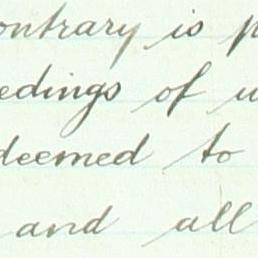 ontrary is p
edings of u
deemed to
and all